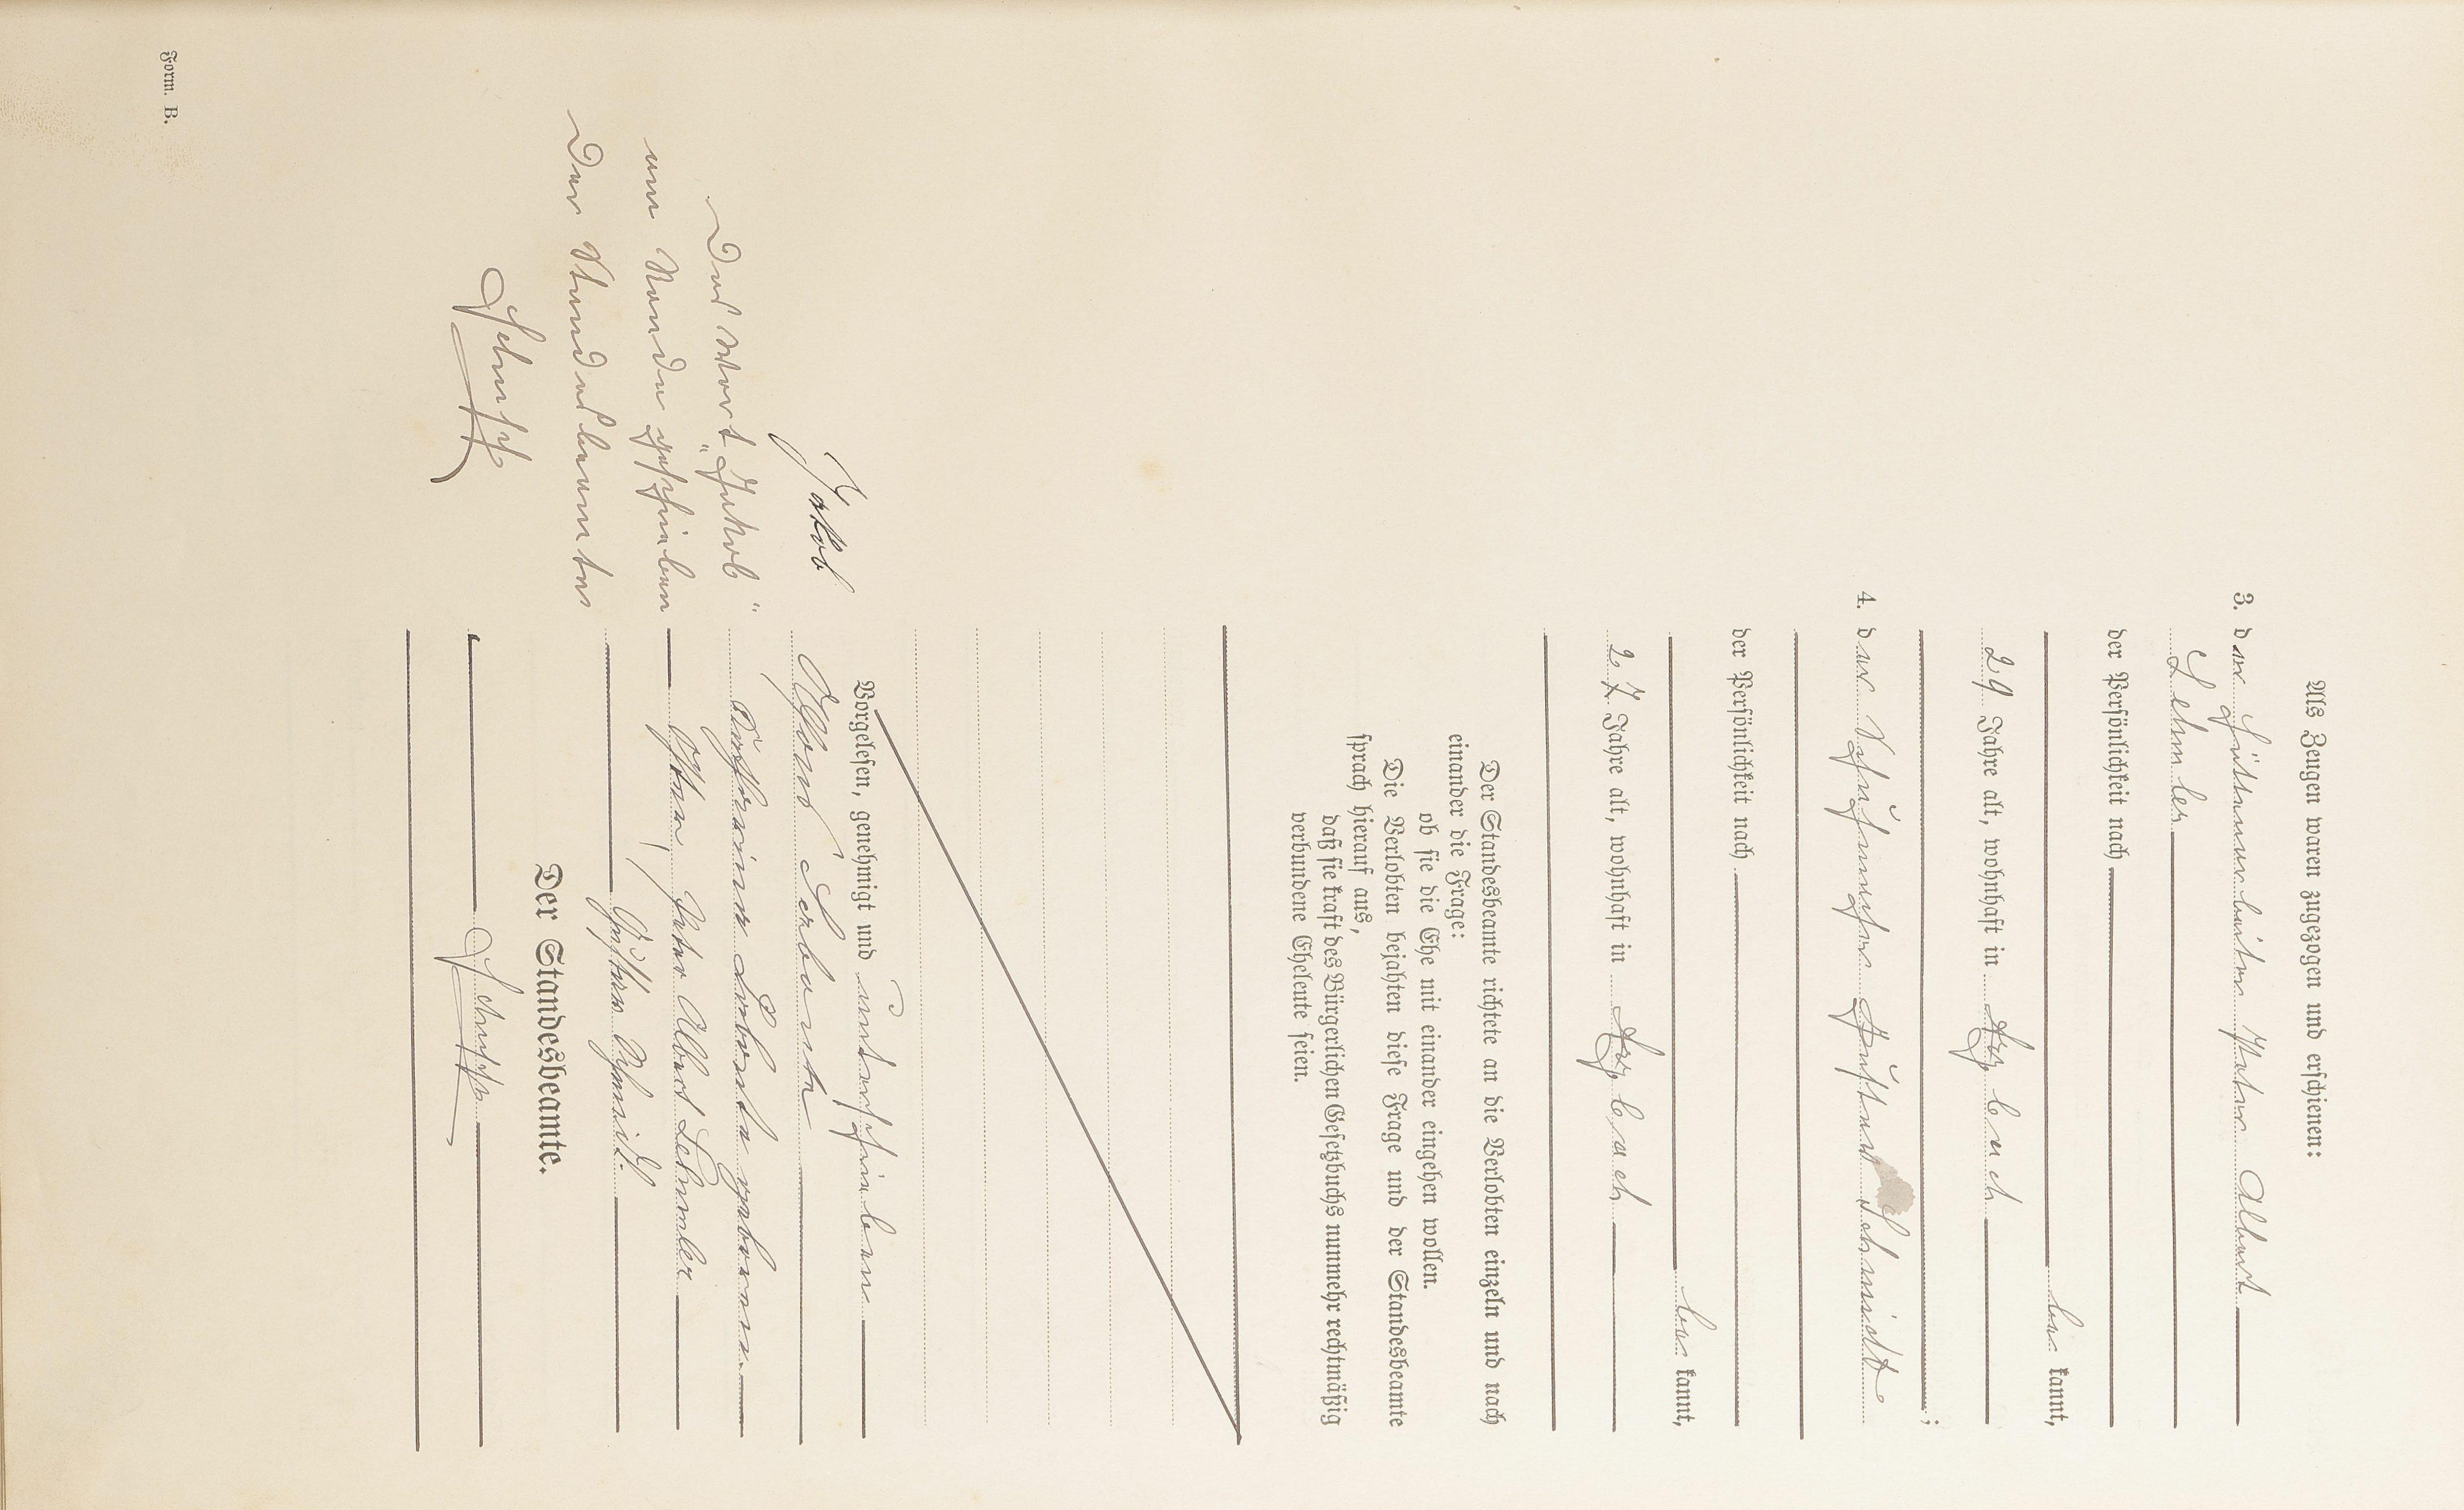 Als Zeugen waren zugezogen und erschienen:
3. der Hüttenarbeiter Peter Albert
Lehmler
der Persönlichkeit nach
be kannt,
29 Jahre alt, wohnhaft in Arzbach
;
4. der Schuhmacher Gustav Schmidt
der Persönlichkeit nach
be kannt,
27 Jahre alt, wohnhaft in Arzbach
Der Standesbeamte richtete an die Verlobten einzeln und nach
einander die Frage:
ob sie die Ehe mit einander eingehen wollen.
Die Verlobten bejahten diese Frage und der Standesbeamte
sprach hierauf aus,
daß sie kraft des Bürgerlichen Gesetzbuchs nunmehr rechtmäßig
verbundene Eheleute seien.
Vorgelesen, genehmigt und unterschrieben
Jakob
Katharina geborene
Peter Albert Lehmler
Gustav Schmidt.
Der Standesbeamte.
Das Wort "Jakob"
am Rande geschrieben
Der Standesbeamte
Form. B.